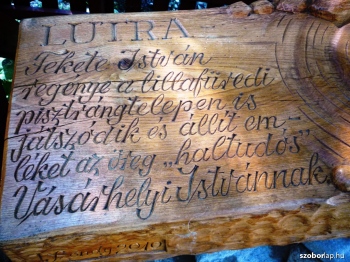 LUTRA
Fekete István
regénye a lillafüredi
pisztrángtelepen is
játszódik és állít em-
léket az öreg „haltudós”
Vásárhelyi Istvánnak.
szoborlap.hu